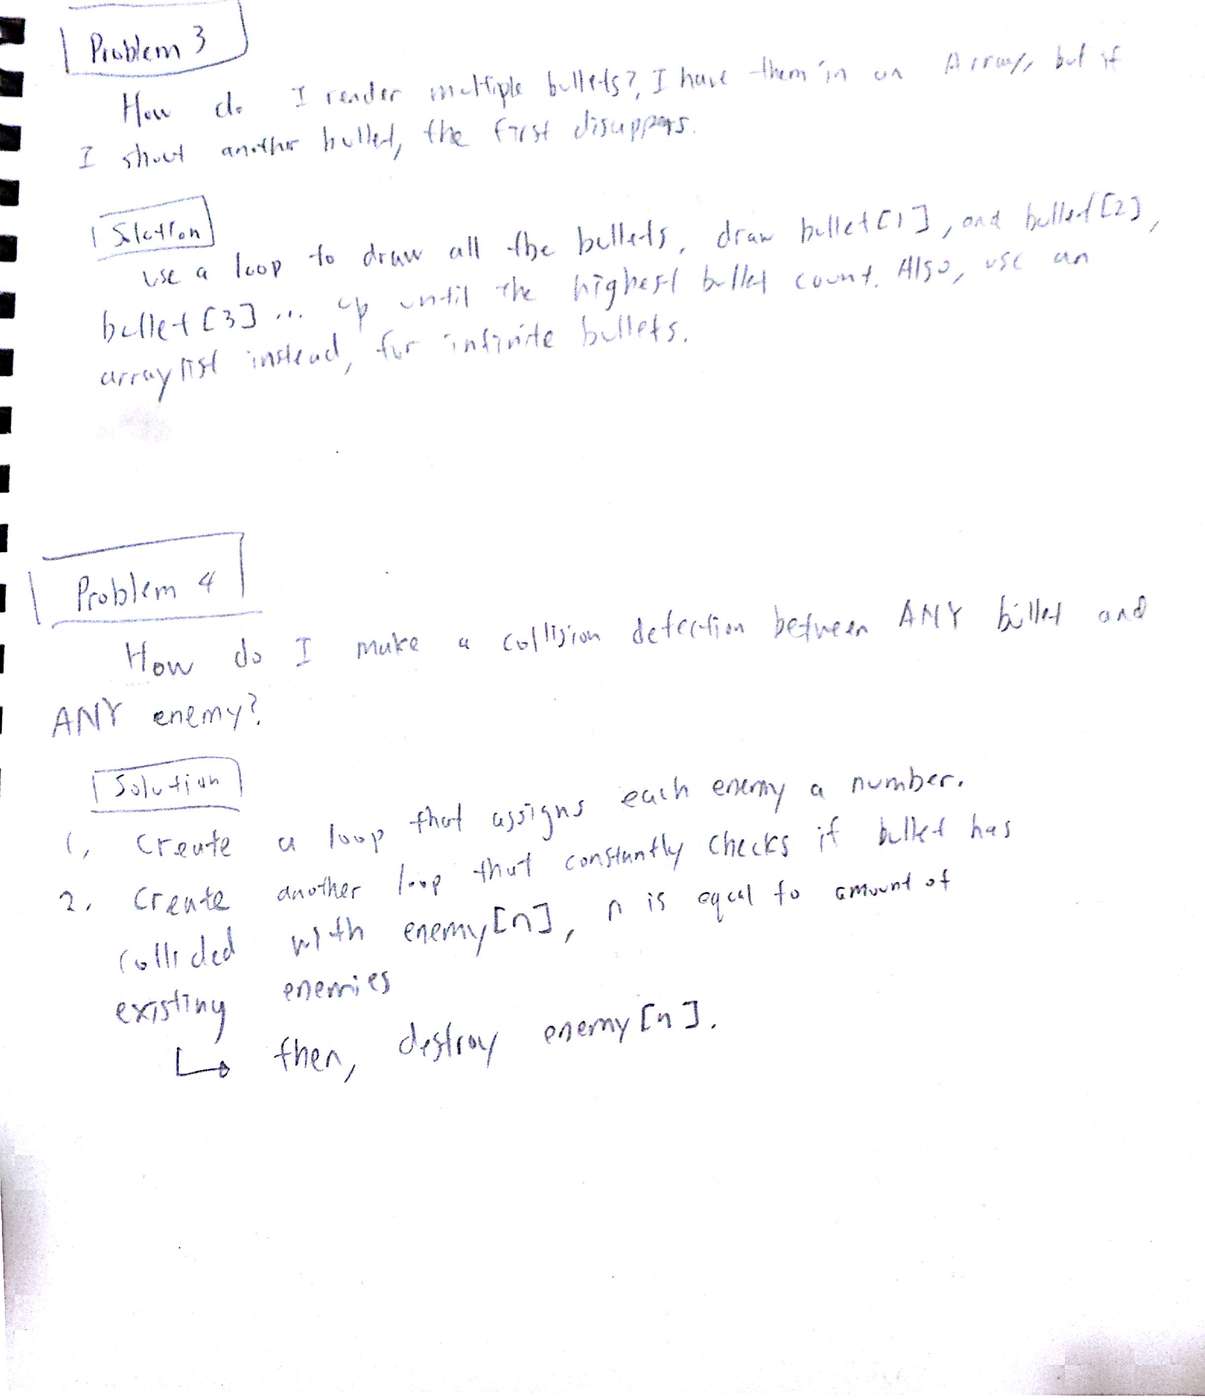 Problem 3
How do I render multiple bullets?, I have them in an Array, but if
I shoot another bullet, the first disappers.
Solution
Use a loop to draw all the bullets, draw bullet[1], and bullet[2],
bullet[3]... up until the highest bullet count. Also, use an
arraylist instead, for infinite bullets.
Problem 4
How do I make a collision detection between ANY bullet and
ANY enemy?
Solution
1, Create a loop that assigns each enemy a number.
2. Create another loop that constantly checks if bullet has
collided with enemy[n], n is equal to amount of
existing enemies
↳ then, destroy enemy[n].